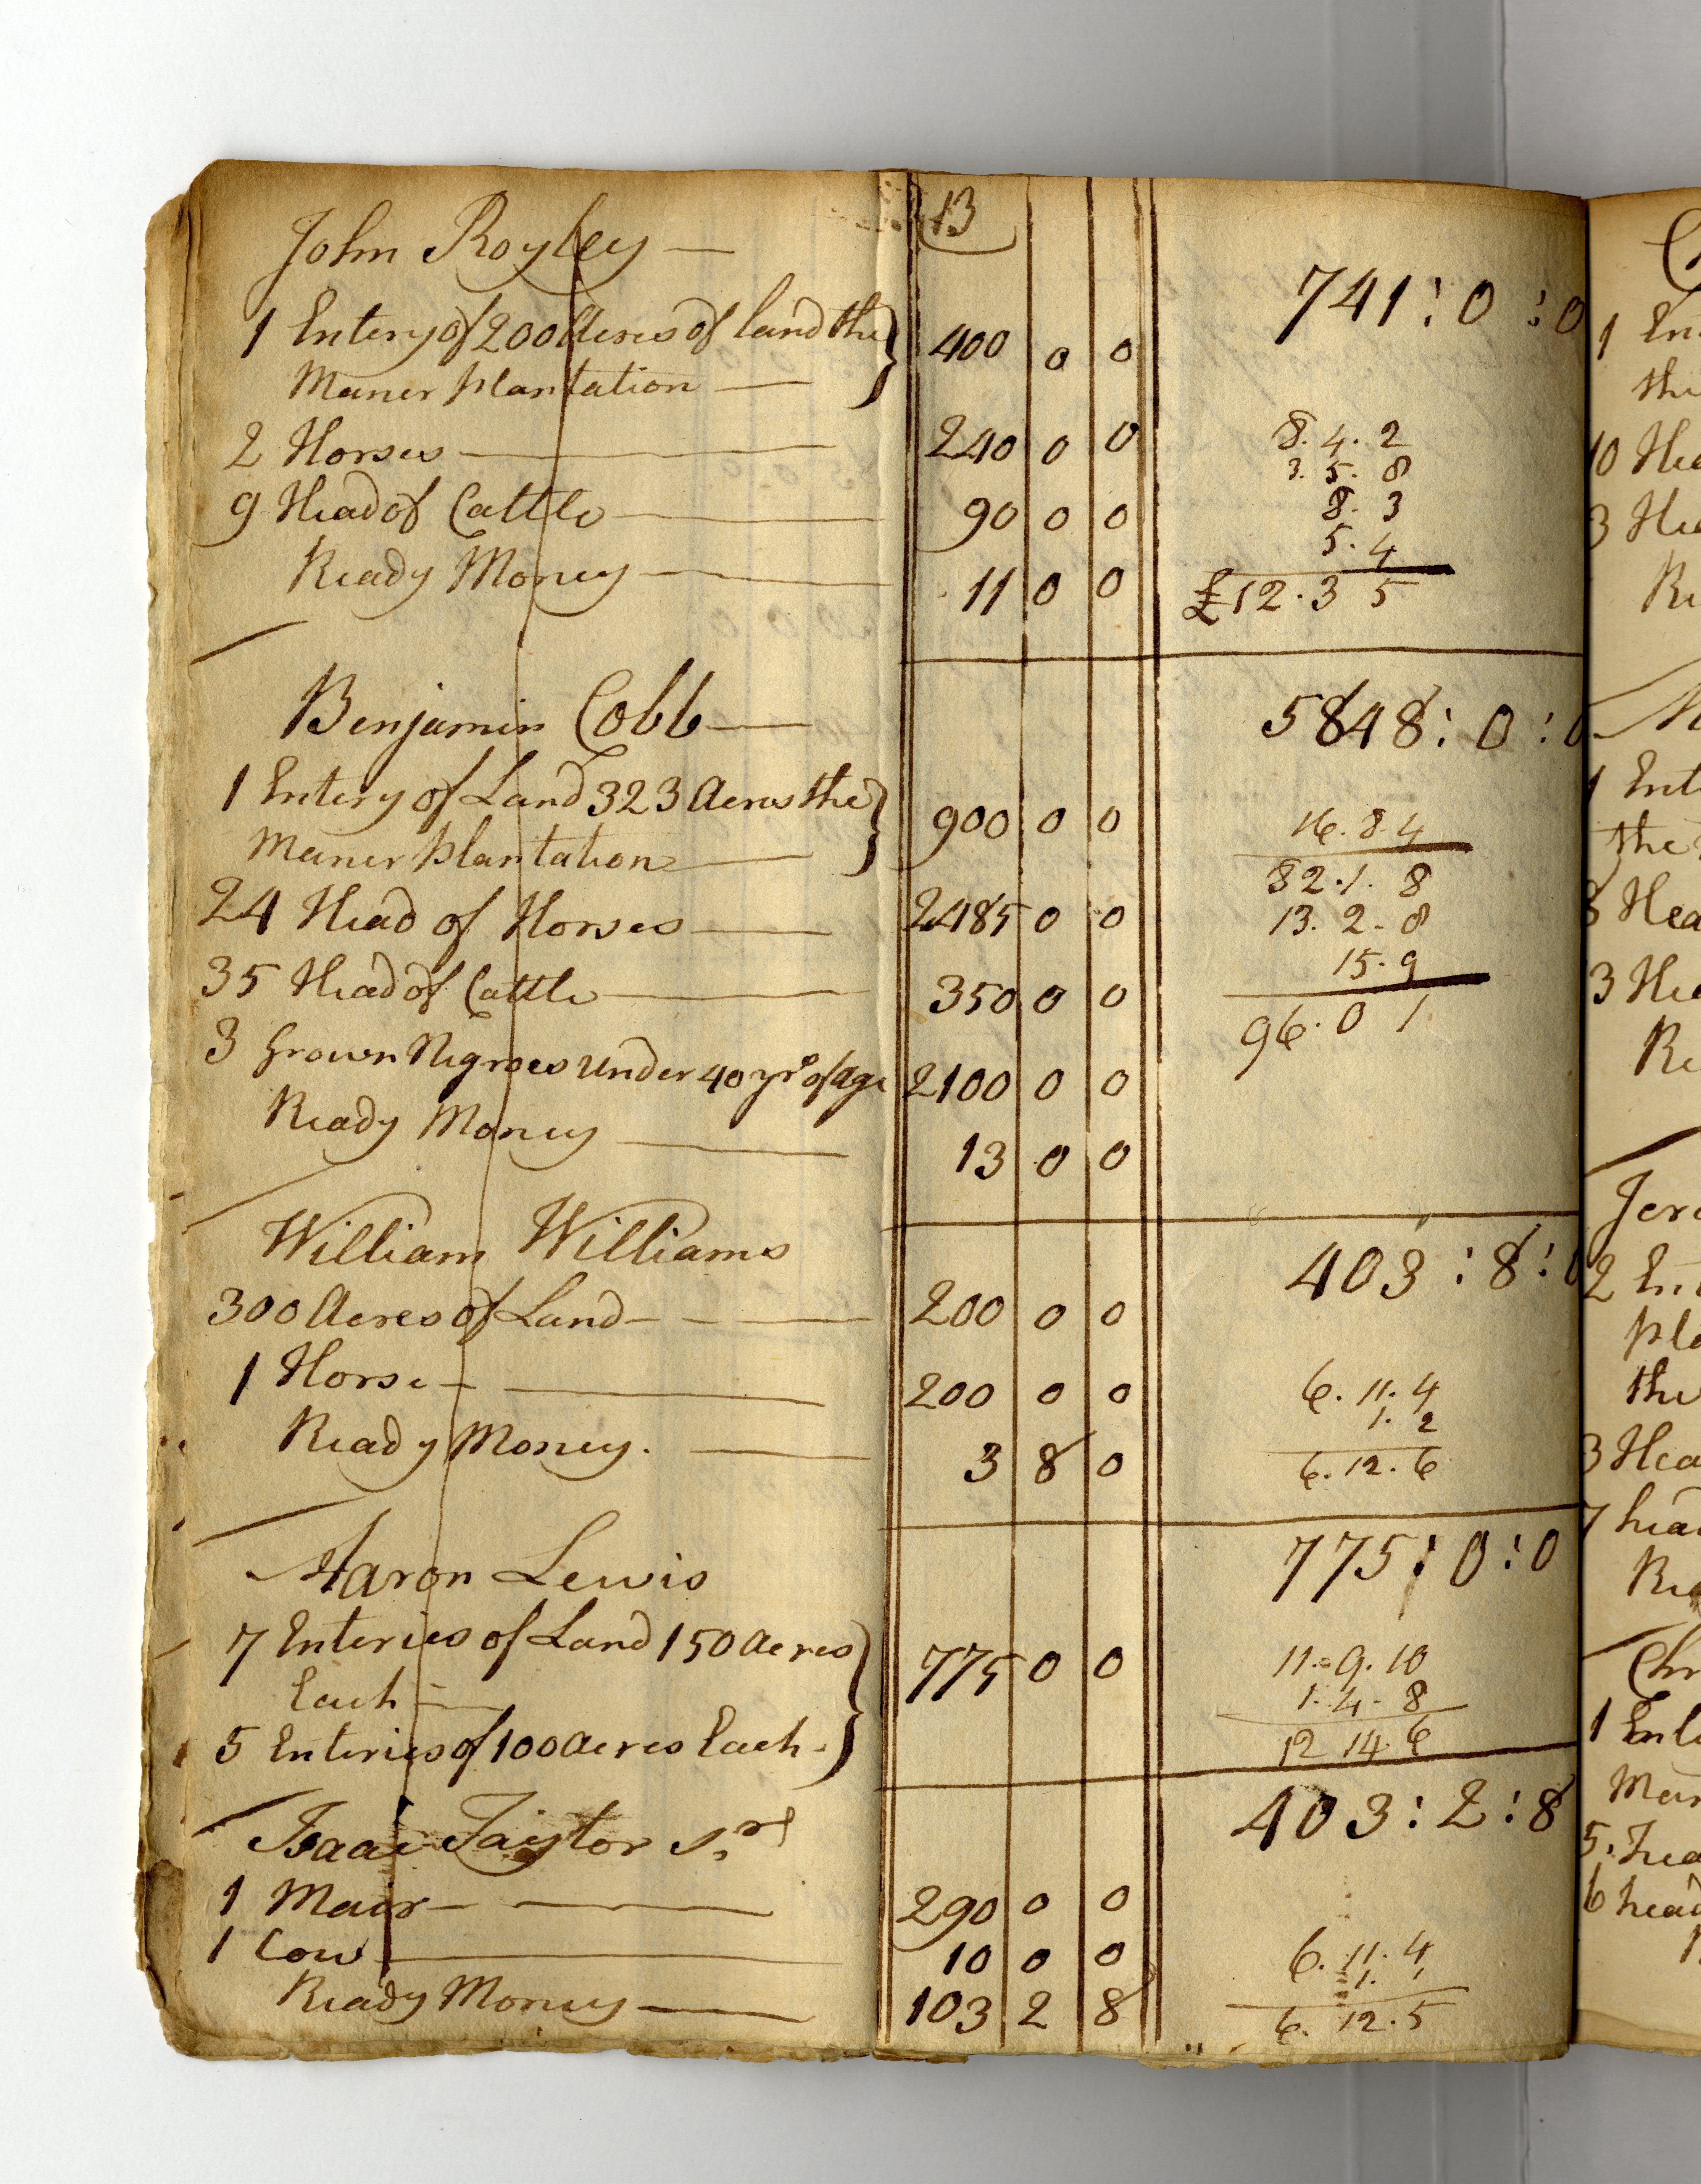 13
John Royley —
741 : 0 : 0
1 Entery of 200 Acres of land the } 400 0 0
Maner plantation —
2 Horses — 240 0 0
8. 4. 2
3. 5. 8
9 Head of Cattle — 90 0 0
8. 3
5. 4
Ready Money — 11 0 0
£12. 3 5
Benjamin Cobb —
5848 : 0 : 0
1 Entery of Land 323 Acres the } 900 0 0
Maner plantation —
16. 8. 4
82. 1. 8
24 Head of Horses — 2485 0 0
13. 2. 8
15. 9
35 Head of Cattle — 350 0 0
96. 0 1
3 Grown Negroes under 40 yrs of Age 2100 0 0
Ready Money — 13 0 0
William Williams
403 : 8 : 0
300 Acres of Land — 200 0 0
1 Horse — 200 0 0
6. 11. 4
1. 2
Ready Money. — 3 8 0
6. 12. 6
Aaron Lewis
775 : 0 : 0
7 Enteries of Land 150 Acres } 775 0 0
Each —
11. 9. 10
1. 4. 8
5 Enteries of 100 acres Each.
12 14. 6
Isaac Taylor Sr
403 : 2 : 8
1 Mair — 290 0 0
1 Cow — 10 0 0
6. 11. 4
1. 1
Ready Money — 103 2 8
6. 12. 5
1
the
10
3
1 Ent
the
8 Hea
3
2
the
3 Hea
7 head
1
5.
6 head